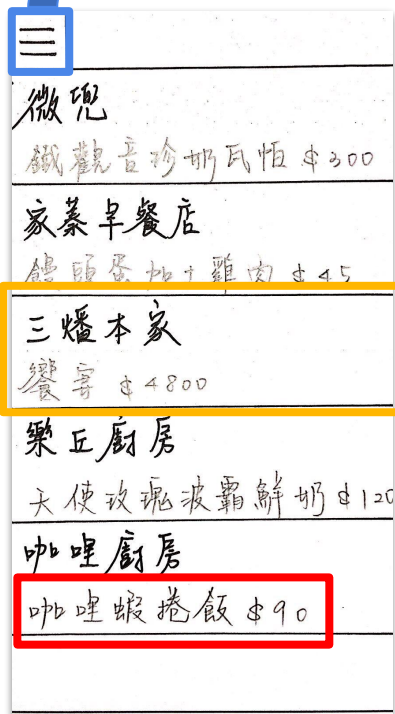 微兜
鐵觀音珍奶瓦帕 $300
家蓁早餐店
饅頭蛋加+雞肉 $45
三燔本家
饗宴 $4800
樂丘廚房
天使玫瑰波霸鮮奶 $120
咖哩廚房
咖哩蝦捲飯 $90